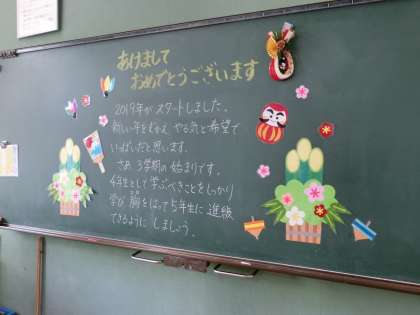 あけまして
おめでとうございます
2019年がスタートしました。
新しい年をむかえ やる気と希望で
いっぱいだと思います。
さあ 3学期の始まりです。
4年生として学ぶべきことをしっかり
学び 胸をはって5年生に 進級
できるように しましょう。